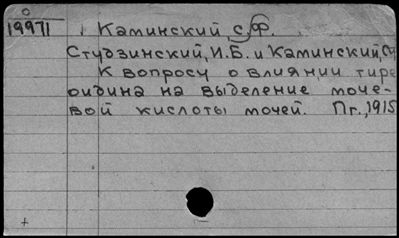 19971
Каминский С.Ф.
Студзинский, И.Б. и Каминский, С.Ф.
К вопросу о влиянии тире
оидина на выделение моче-
вой кислоты мочей. Пг., 1915